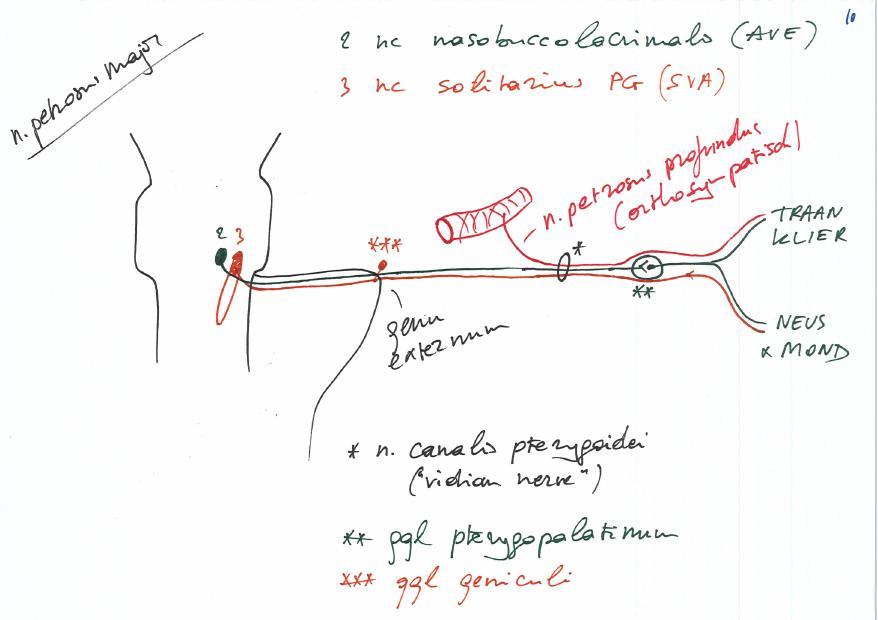 10
n. petrosus major
2 nc nasobuccolacrimalis (AVE)
3 nc solitarius PG (SVA)
n. petrosus profundus
(orthosympatisch)
2 3
***
*
**
TRAAN
KLIER
genu
externum
NEUS
& MOND
* n. canalis pterygoidei
("vidian nerve")
** ggl pterygopalatinum
*** ggl geniculi